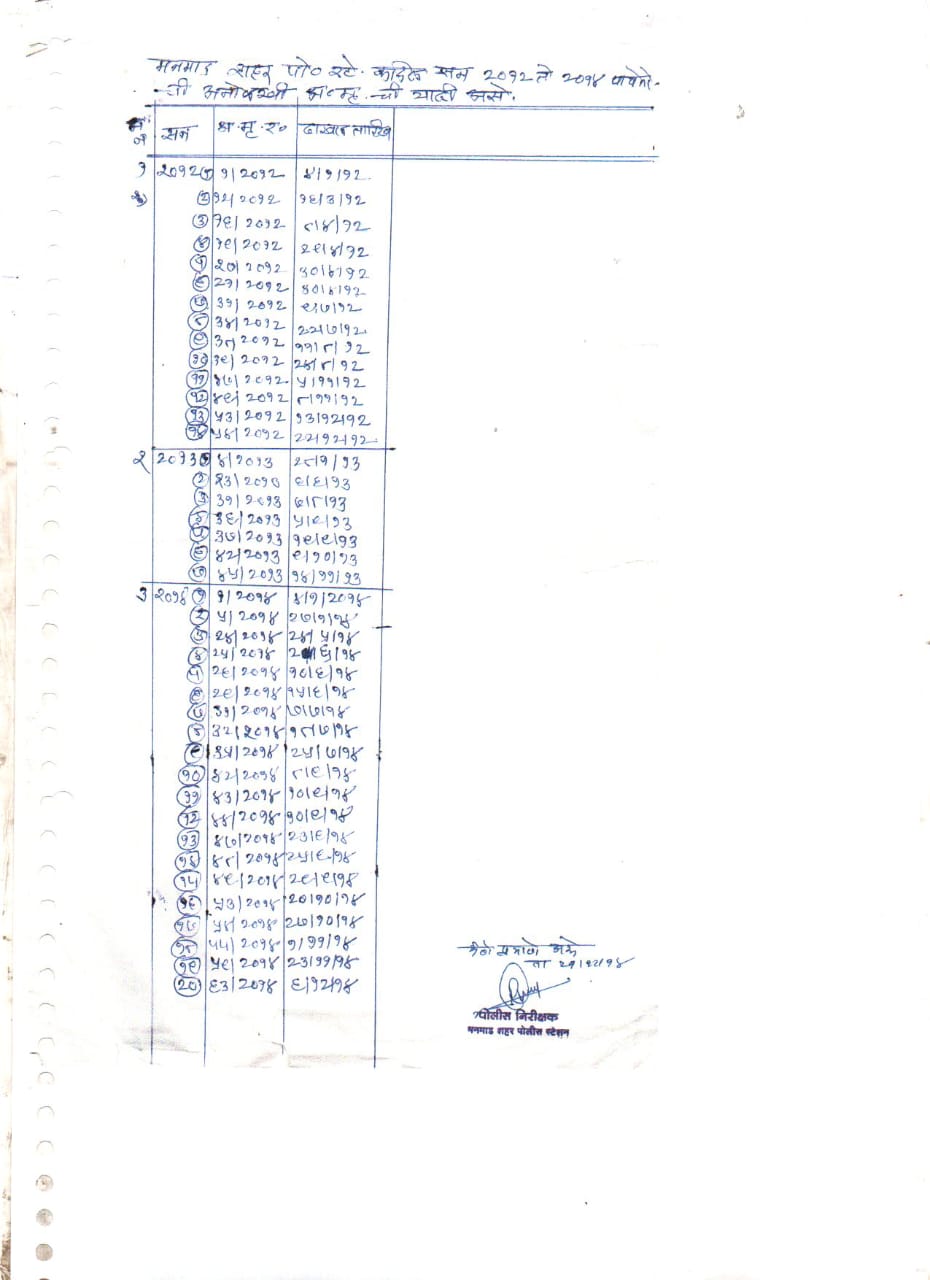 मनमाड शहर पो० स्टे. कडिल सन २०१२ ते २०१४ पावेतो-
-ची अनोळखी अ०मृ. ची यादी असे.
अ नं सन अ.मृ.र० दाखल तारिख
१ २०१२ १ १/२०१२ ४/१/१२
२ १२/२०१२ १६/३/१२
३ १६/२०१२ ८/४/१२
४ १९/२०१२ २९/४/१२
५ २०/२०१२ ३०/४/१२
६ २१/२०१२ ३०/४/१२
७ ३१/२०१२ ९/७/१२
८ ३४/२०१२ २२/७/१२
९ ३८/२०१२ ११/८/१२
१० ३९/२०१२ २४/८/१२
११ ४७/२०१२ ५/११/१२
१२ ४९/२०१२ ८/११/१२
१३ ५३/२०१२ १३/१२/१२
१४ ५४/२०१२ २२/१२/१२
२ २०१३ १ ४/२०१३ २८/१/१३
२ २३/२०१३ ६/६/१३
३ ३१/२०१३ ७/८/१३
४ ३६/२०१३ ५/९/१३
५ ३७/२०१३ १९/९/१३
६ ४२/२०१३ ९/१०/१३
७ ४५/२०१३ १४/११/१३
३ २०१४ १ १/२०१४ ४/१/२०१४
२ ५/२०१४ २७/१/१४
३ २४/२०१४ २८/५/१४
४ २५/२०१४ /६/१४
५ २६/२०१४ १०/६/१४
६ २९/२०१४ १५/६/१४
७ ३१/२०१४ ७/७/१४
८ ३२/२०१४ १८/७/१४
९ ३५/२०१४ २५/७/१४
१० ४२/२०१४ ८/९/१४
११ ४३/२०१४ १०/९/१४
१२ ४४/२०१४ १०/९/१४
१३ ४७/२०१४ २३/९/१४
१४ ४८/२०१४ २५/९/१४
१५ ४९/२०१४ २९/९/१४
१६ ५३/२०१४ २०/१०/१४
१७ ५४/२०१४ २७/१०/१४
१८ ५५/२०१४ १/११/१४
१९ ५९/२०१४ २३/११/१४
२० ६३/२०१४ ६/१२/१४
येणे प्रमाणे असे
ता २१/१२/१४
पोलीस निरीक्षक
मनमाड शहर पोलीस स्टेशन